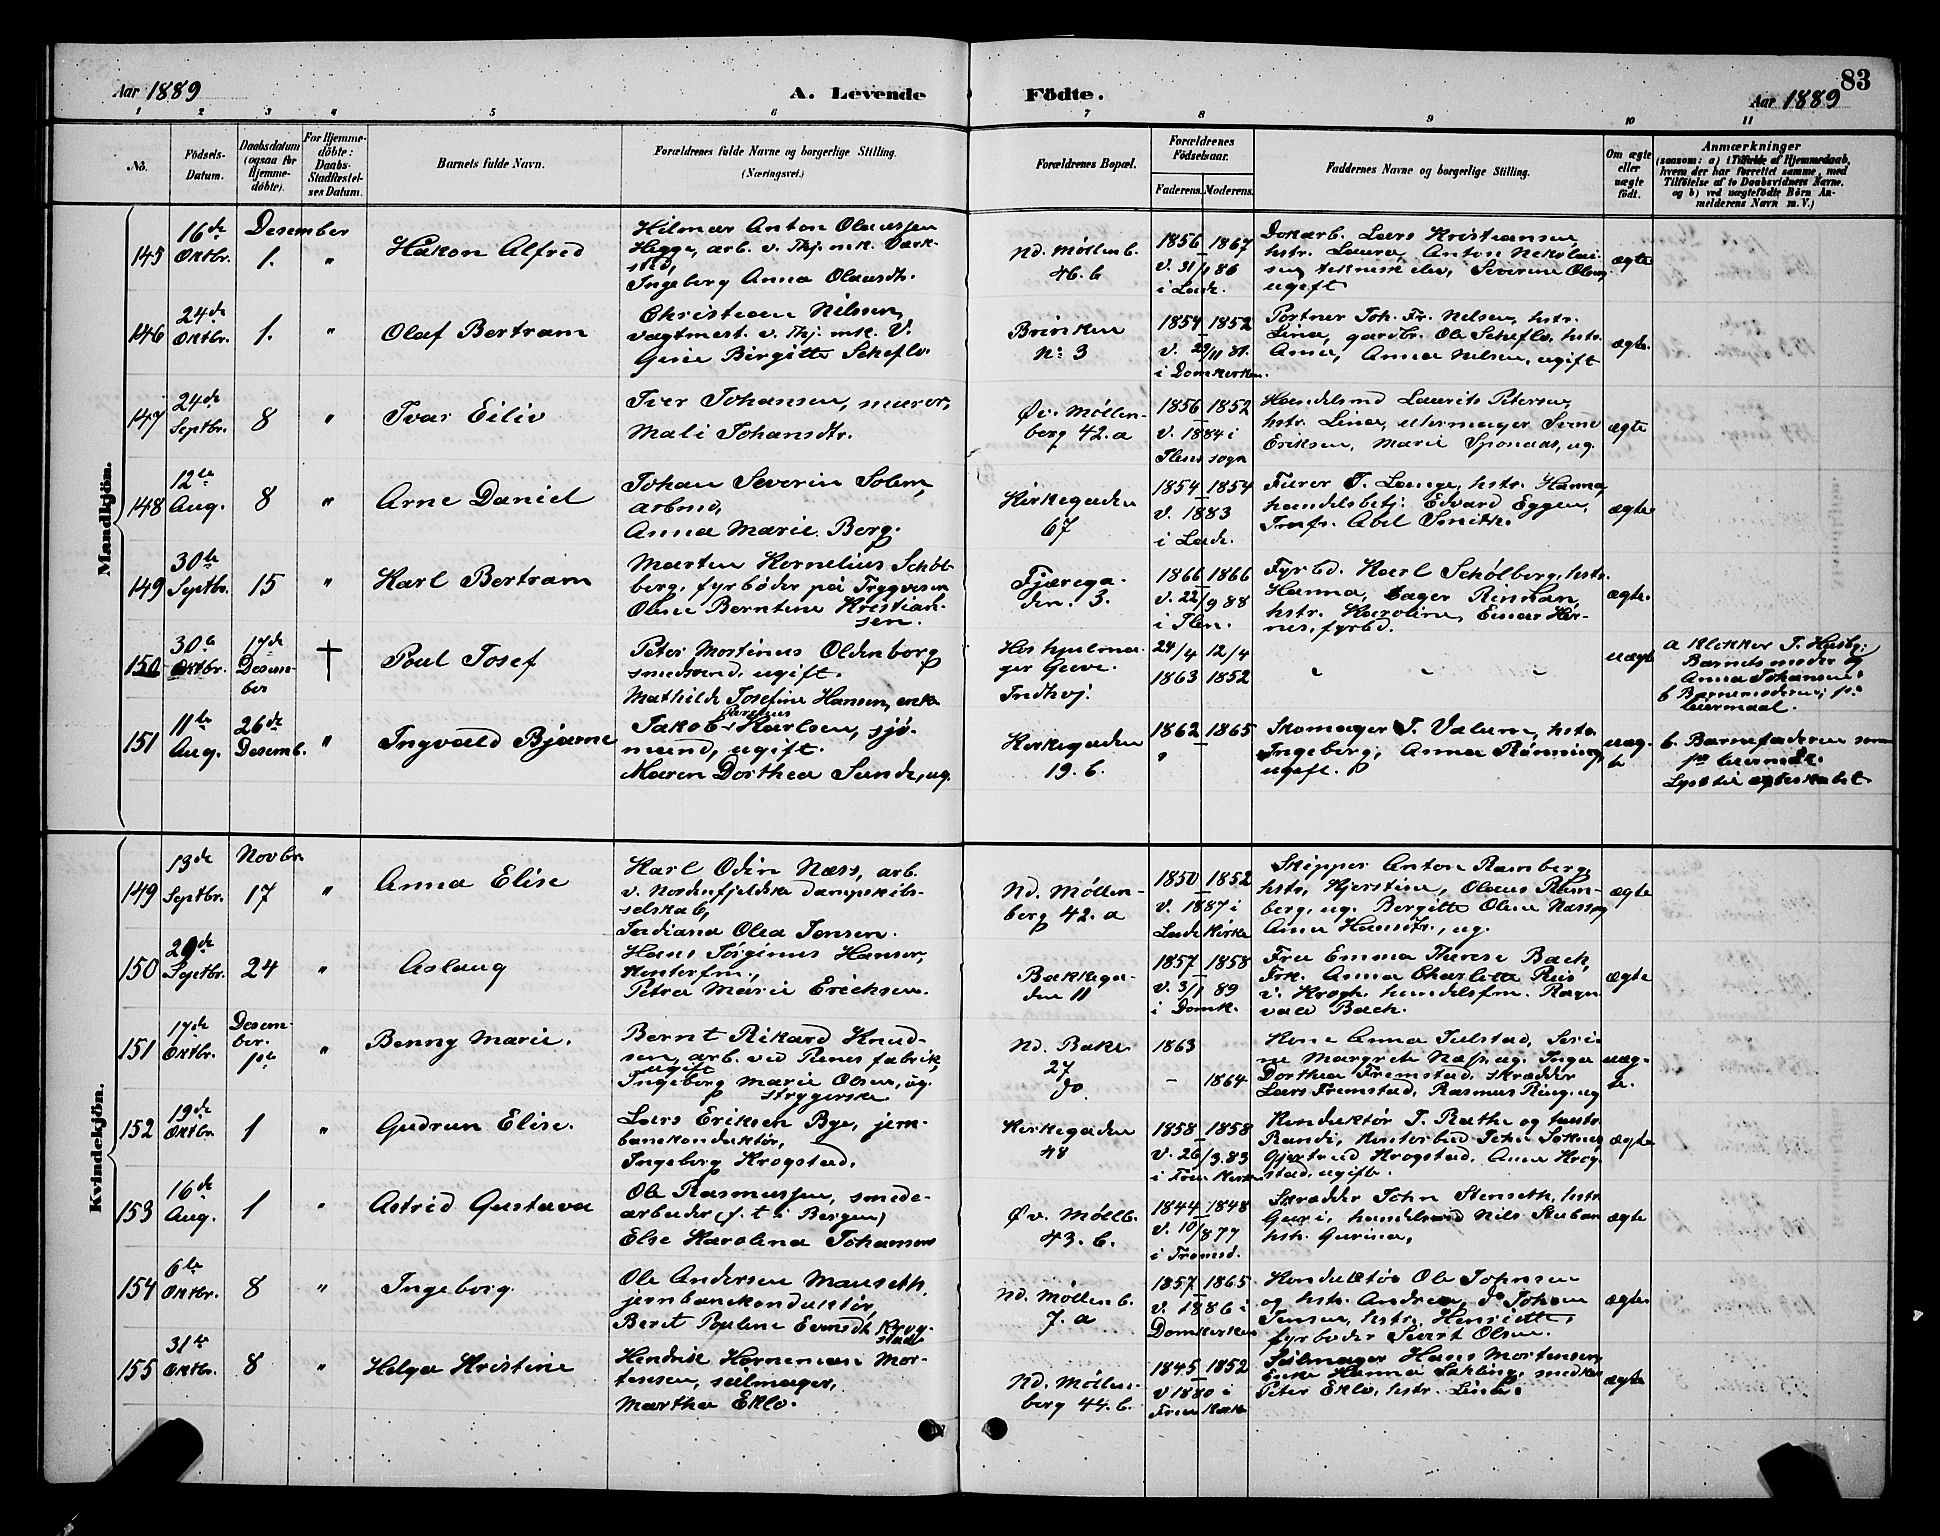 Aar 1889
A. Levende
Födte.
83
Aar 1889
1 2 3 4 5 6 7 8 9 10 11
No.
Födsels-
Datum.
Daabsdatum
(ogsaa for
Hjemme-
döbte).
For Hjemme-
döbte:
Daabs-
Stadfæstel-
ses Datum.
Barnets fulde Navn.
Forældrenes fulde Navne og borgerlige Stilling.
(Næringsvei.)
Forældrenes Bopæl.
Forældrenes
Födselsaar.
Faderens. Moderens.
Faddernes Navne og borgerlige Stilling.
Om ægte
eller
uægte
födt.
Anmærkninger
(saasom: a) i Tilfælde af Hjemmedaab,
hvem der har forrettet samme, med
Tilföielse af to Daabsvidners Navne.
og b) ved uægtefödte Börn An-
melderens Navn m. V.)
Mandkjön.
145
16de
Oktbr.
Desember
1.
"
Håkon Alfred
Hilmar Anton Olaussen
Hegge, arb. v. Thj. mk. Værk-
sted,
Ingeborg Anna Olausdtr.
Nd. Møllenb.
46. b
1856 1867
v. 31/1 86
i Lade.
Lars Kristiansen,
hstr. Laura, Anton Nikolai-
sen teknisk elev, Severine Olsen,
ugift
ægte
146
24de
Oktbr.
1.
"
Olaf Bertram
Christian Nilsen,
vagtmest. v. Thj. mk. V.
Gerie Birgitte Scheflo.
Brinken
No: 3
1854 1852
i Domkirken.
Portner Joh. Fr. Nelsen, hstr.
Lina, gardbr. Ole Scheflo, hstr.
Anna, Anna Nelsen, ugift
ægte.
147
24de
Septbr.
8
"
Ivar Eiliv
Iver Johansen, murer,
Mali Johansdtr.
Øv. Møllen-
berg 42. a
1856 1852
v. 1884 i
Ilens sogn
Handelsmd Laurits Petersen,
hstr. Lina, urmager
Eriksen, Marie ug.
ægte
148
12te
Aug.
8
"
Arne Daniel
Johan Severin Solem,
arbmd,
Anna Marie Berg.
Kirkegaden
67
1854 1854
v. 1883
i Lade.
Furer T. Lange, hstr. Hanna,
handelsbetj. Edvard Eggen,
Jmfr. Abel Smith.
ægte
149
30te
Septbr.
15
"
Karl Bertram
Morten Kornelius Schøl-
berg, fyrbøder på Trygvesen
Oline Berntine Kristian-
sen.
Fjærega-
den. 3.
1866 1866
v. 22/9 88
i Ilen.
Fyrbd. Karl Schølberg, hstr.
Hanna, Bager Rinnan,
hstr. Karoline, Einar Hir-
nes, fyrbd.
ægte.
150
30te
Oktbr.
17de
Desem-
ber
†
Poul Josef
Peter Mortinus Oldenborg
smedsvend, ugift.
Mathilde Josefine Hansen, enke
Hos hjulma-
ger Greve.
Indhvj.
24/4 12/4
1863 1852
" " "
uægte
a Klokker T. Husby;
Barnets moder og
Anna Johansen.
b Barnemoderen; 1ste
leiermaal.
151
11te
Aug.
26de
Desemb.
"
Ingvald Bjarne
Jakob Karlsen, sjø-
mand, ugift.
Maren Dorthea Sunde, ug.
Kirkegaden
19. b.
1862 1865
"
Skomager J. Valum, hstr.
Ingeborg, Anna Rønning,
ugift.
uæg-
te
b. Barnefaderen som
1ste leiermaal.
Lyst til ægteskabet
Kvindekjön.
149
13de
Septbr.
Novbr.
17
"
Anna Elise
Karl Odin Næss, arb.
v. Nordenfjeldske dampskibs-
selskab,
Jardiana Olea Jensen.
Nd. Møllen-
berg 42. a
1850 1852
v. 1887 i
Lade Kirke
Skipper Anton Ramberg,
hstr. Kjerstine, Olaus Ram-
berg, ug. Bergitte Olsen Næss,
Anna Hansdtr., ug.
ægte
150
20de
Septbr.
24
"
Aslaug
Hans Jørginus Hansen,
kontorfm.,
Petra Marie Erichsen.
Bakkega-
den 11
1857 1858
v. 3/1 89
i Domk.
Fru Emma Therese Bach,
Frk. Anna Charlotte Reis
v. Krogh, handelsfm. Ragn-
vald Bach.
ægte
151
17de
Oktbr.
Desem-
ber.
1ste
"
Benny Marie.
Bernt Rikard Knud-
sen, arb. ved Renes fabrik,
ugift
Ingeborg Marie Olsen, ug.
strygerske
Nd. Bake-
27
do.
1863
– 1864
Kone Anna Julstad, Seri-
ne Margrete Næss, ug. Inga
Dorthea Fremstad, skrædder
Lars Fremstad, Rasmus Ring, ug
uæg-
te.
152
19de
Oktbr
1
"
Gudrun Elise.
Lars Eriksen Bye, jern-
banekonduktør,
Ingeborg Krogstad.
Kirkegaden
48
1858 1858
v. 26/3. 83
i Frue Kirke
Konduktør J. Rathe og hustr.
Randi, kontorbud John Soknes,
Gjertrud Krogstad, Anna Krog-
stad, ugifte.
ægte
153
16de
Aug.
1
"
Astrid Gustava
Ole Rasmussen, smede-
arbeider (f. t. i Bergen)
Else Karolina Johansen
Øv. Møllb.
43. b.
1844 1848
v. 10/8 77
i Tromsd.
Skrædder John Stenseth, hstr
Guri, handelsmd Nils Stuban
hstr. Gurina,
ægte
154
6te
Oktbr.
8
"
Ingeborg
Ole Andersen Mauseth,
jernbanekonduktør,
Berit Pauline Evensdtr Krog-
stad
Nd. Møllenb.
7. a
1857 1865
v. 1886 i
Domkirken
Konduktør Ole Johnsen
og hstr. Andrea, do Johan
Jensen, hstr. Henriette,
fyrbøder Sivert Olsen.
ægte
155
31te
Oktbr.
8
"
Helga Kristine
Hendrik Horneman Mor-
tensen, seilmager,
Martha Eklo.
Nd. Møllen-
berg 44. b.
1845 1852
v 1880 i
Frue Kirke
Seilmager Hans Mortensen,
Enke Hanna Sakling, snedker
Peter Eklo, hstr. Lina.
ægte